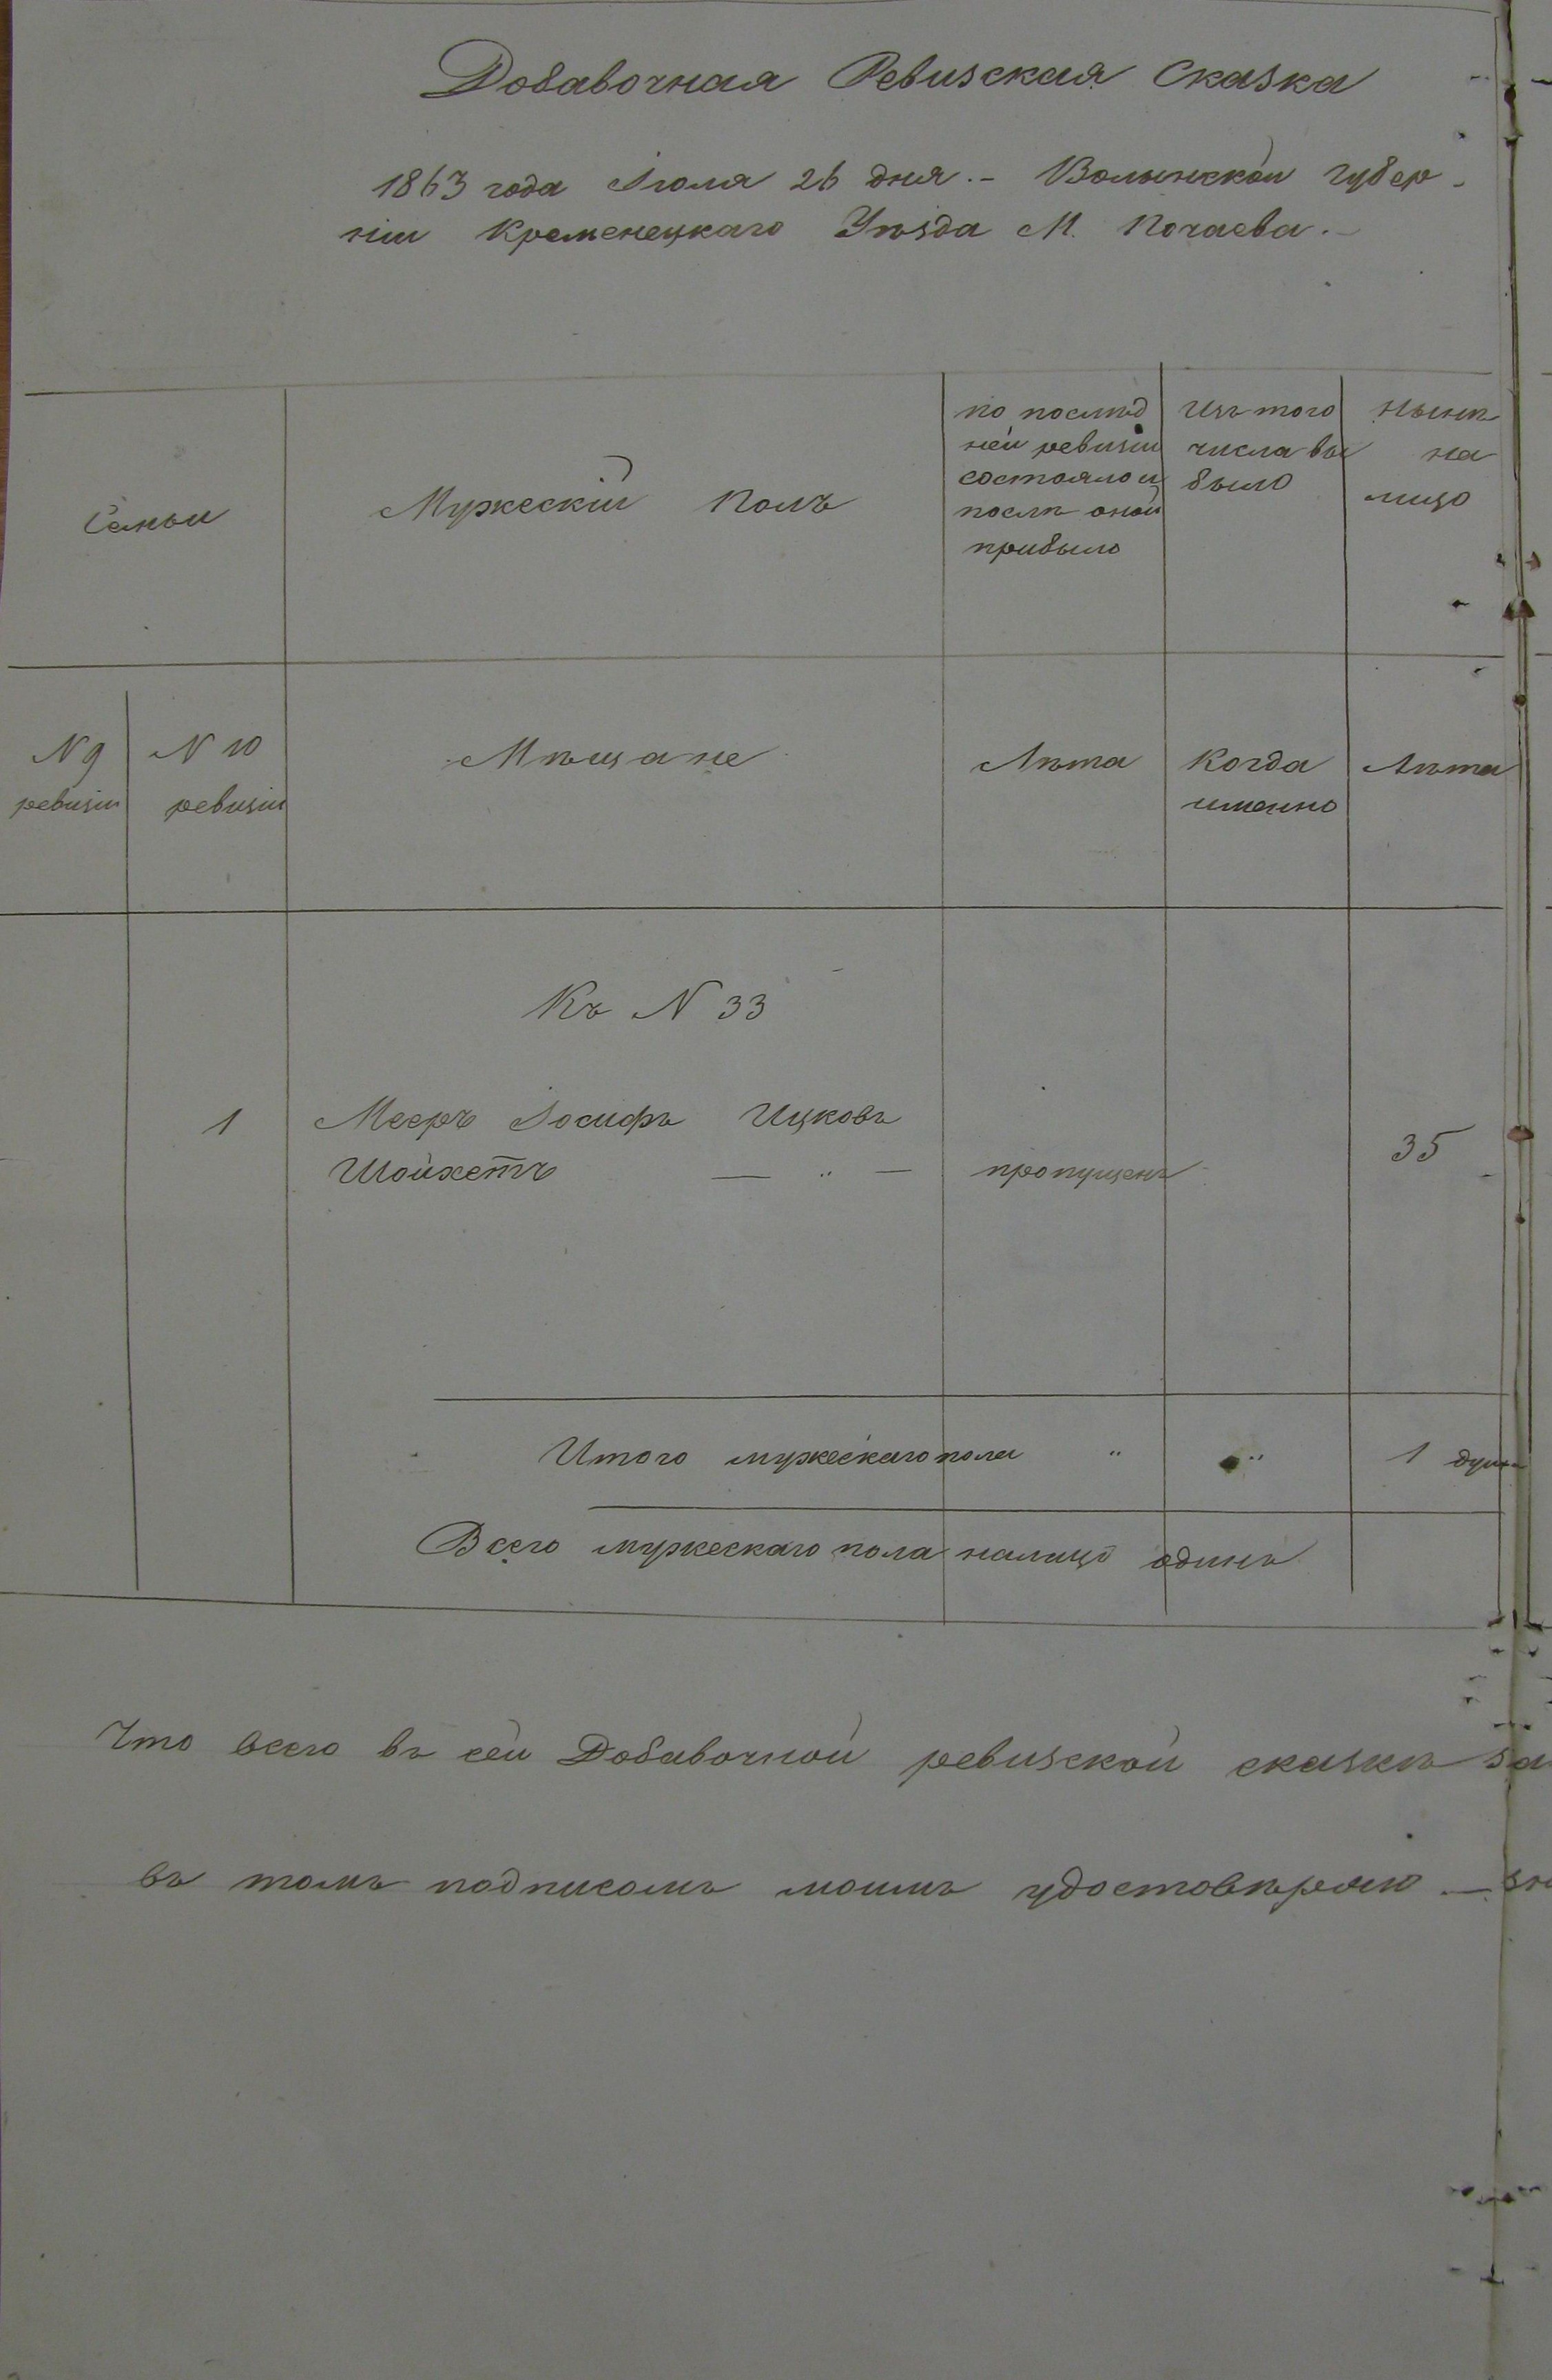 Добавочная Ревизская Сказка
1863 года Іюля 26 дня.- Волынской Губер-
ніи Кременецкаго Уѣзда М. Почаева.-
Семьи
Мужескій Полъ
по послѣд
ней ревизіи
состояло и
послѣ оной
прибыло
Изъ того
числа вы
было
Нынѣ
на
лицо
N 9
ревизіи
N 10
ревизіи
Мѣщане
Лѣта
Когда
именно
Лѣта
Къ N 33
1 Мееръ Іосифъ Ицковъ
Шойхетъ — " — пропущенъ 35
Итого мужескаго пола " " 1 душа
Всего мужескаго пола налицо одинъ
Что всего въ сей Добавочной ревизской сказкѣ за
въ томъ подписомъ моимъ удостовѣряю —